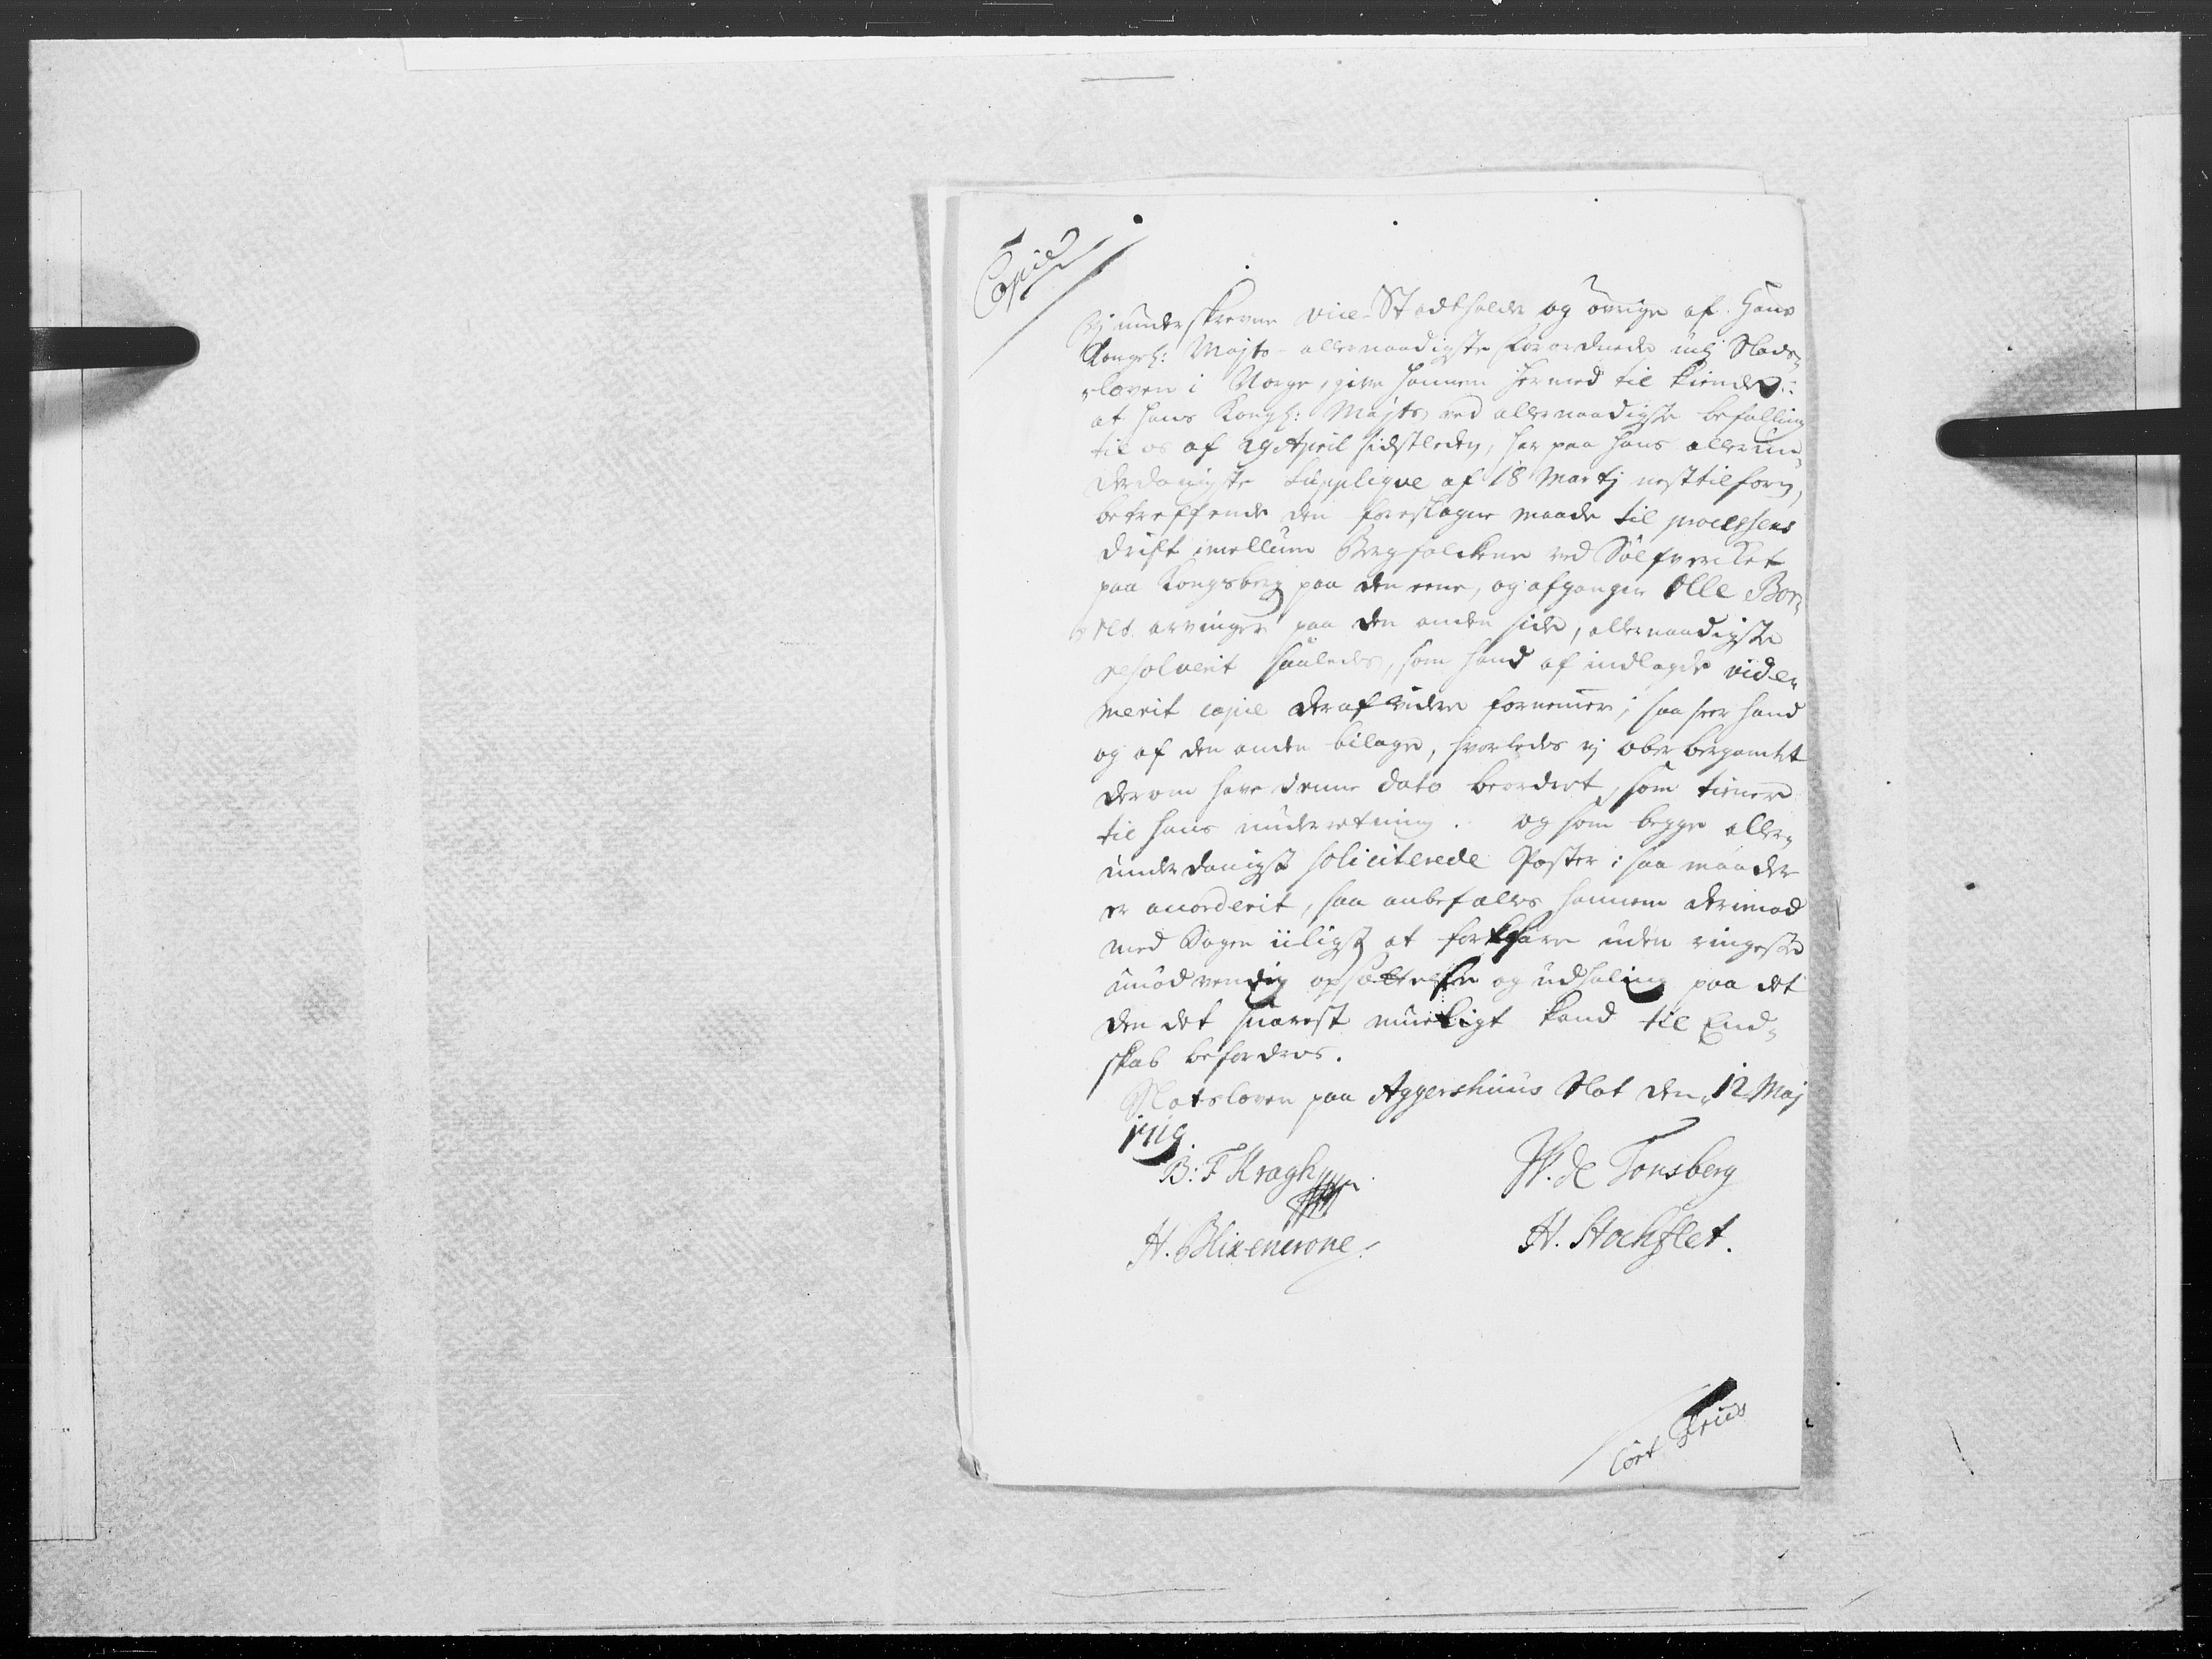 Copie
Vj underskrevne Vice-Stadtholder og øvrige af Hans
Kongel: Majts allernaadigste forordnede udj Slods-
Loven i Norge, give hannem hermed til kiende:
at Hans Kongl: Majts ved allernaadigste befalling
til os af 29 April sidstleden, har paa hans allerun-
derdanigste Supplique af 18 Martj nest tilforn,
betreffende den foreslagne maade til processens
drift imellum Bergfolckene ved Sølfvercket
paa Kongsberg paa den eene, og afgangne Olle Bor-
res arvinger paa den anden side, allernaadigste
resolverit saaledes, som hand af indlagde vide-
merit copie deraf videre fornemer; saa seer hand
og af den anden bilage, hvorledes vj Oberbergamtet
derom have denne dato beordret, som tiener
til hans underretning. og som begge aller-
underdanigst soliciterede Poster i saa maader
er accorderit, saa anbefales hannem derimod
med Sagen iiligst at fortfare uden ringeste
unødvendig opsættelse og udhaling paa det
den det snarest mueligt kand til End-
skab befordres.
Slotsloven paa Aggershuus Slot den 12 Maj
1719
B: F Kragh W. de Tonsberg
H. Blixencrone H. Stochflet.
Cort